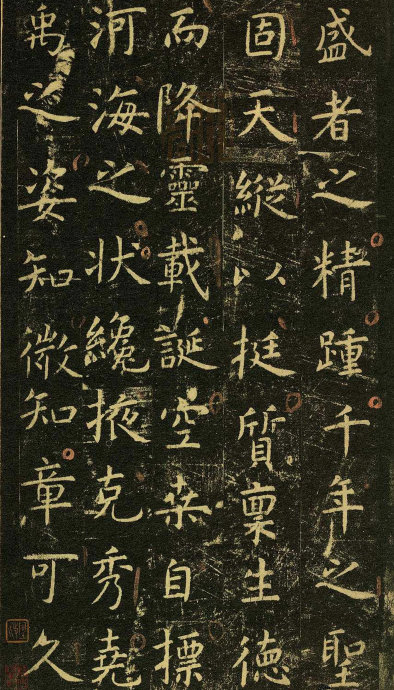 盛者之精踵千年之聖
固天縱以挺質稟生德
而降靈載誕空桒自標
河海之狀纔掖克秀堯
禹之姿知微知章可久